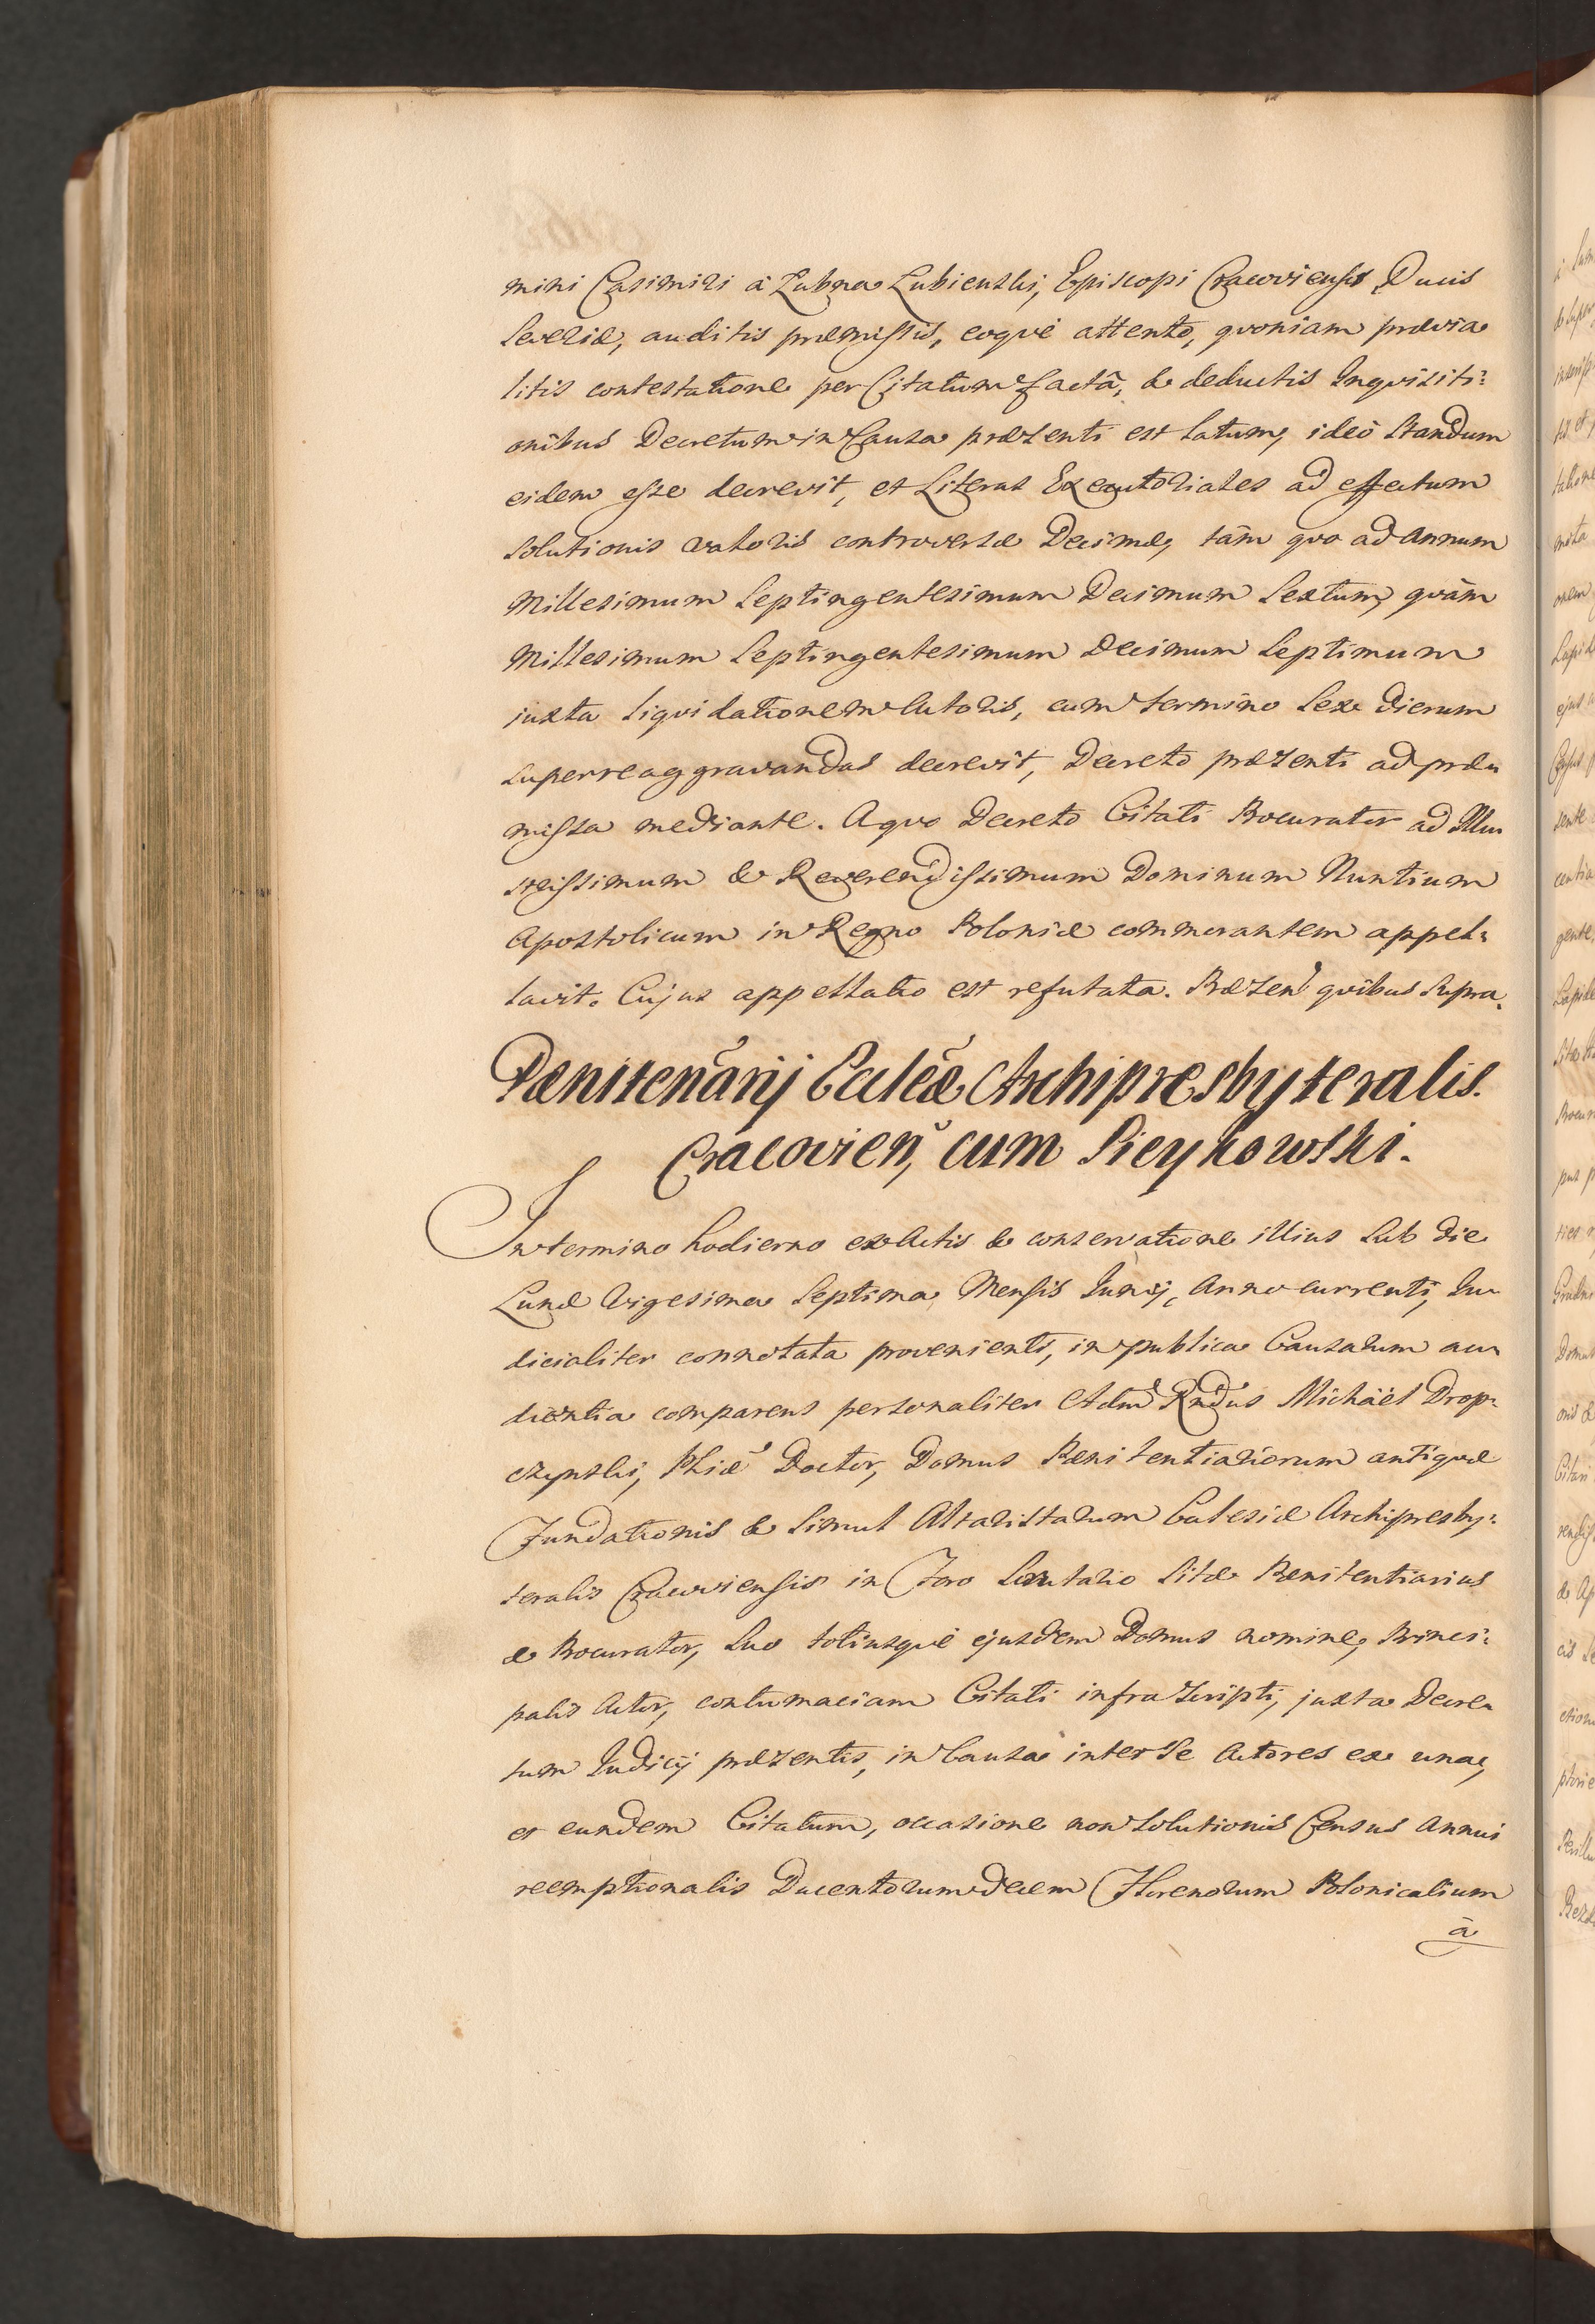 mini Casimiri à Lubna Lubienski, Episcopi Cracoviensis Ducis
Severiæ, auditis præmissis, eoqve attento, qvoniam prævia
litis contestatione per Citatum factâ, & deductis Inqvisiti=
onibus Decretum in Causa præsenti est latum, ideò standum
eidem esse decrevit, et Literas Executoriales ad effectum
solutionis valoris controversæ Decimæ, tàm qvo ad Annum
Millesimum Septingentesimum Decimum Sextum, qvàm
Millesimum Septingentesimum Decimum Septimum
iuxta liqvidationem Actoris, cum termino Sex dierum
superreaggravandas decrevit, Decreto præsenti ad præ=
missa mediante. A qvo Decreto Citati Procurator ad Illu=
strissimum & Reverendissimum Dominum Nuntium
Apostolicum in Regno Poloniæ commorantem appel=
lavit. Cujus appellatio est refutata. Præsen qvibus supra.
Pænitenarij Eccleæ Archipresbyteralis.
Cracovien, cum Pieykowski.
In termino hodierno ex Actis & conservatione illius sub die
Lunæ Vigesima Septima, Mensis Junij, Anno currenti, Ju=
dicialiter connotata provenienti, in publica Causarum au=
dientia comparens personaliter Adm Rndus Michaël Drop=
czynski, Phiæ Doctor, Domus Pænitentiariorum antiqvæ
Fundationis & simul Altaristarum Ecclesiæ Archipresby=
teralis Cracoviensis in Foro Scrutario sitæ Pænitentiarius
& Procurator, suo totiusqve ejusdem Domus nomine, Princi=
palis Actor, contumaciam Citati infrascripti, juxta Decre=
tum Judicij præsentis, in Causa inter se Actores ex una,
et eundem Citatum, occasione non solutionis Census Annui
reemptionalis Ducentorum decem Florenorum Polonicalium
à